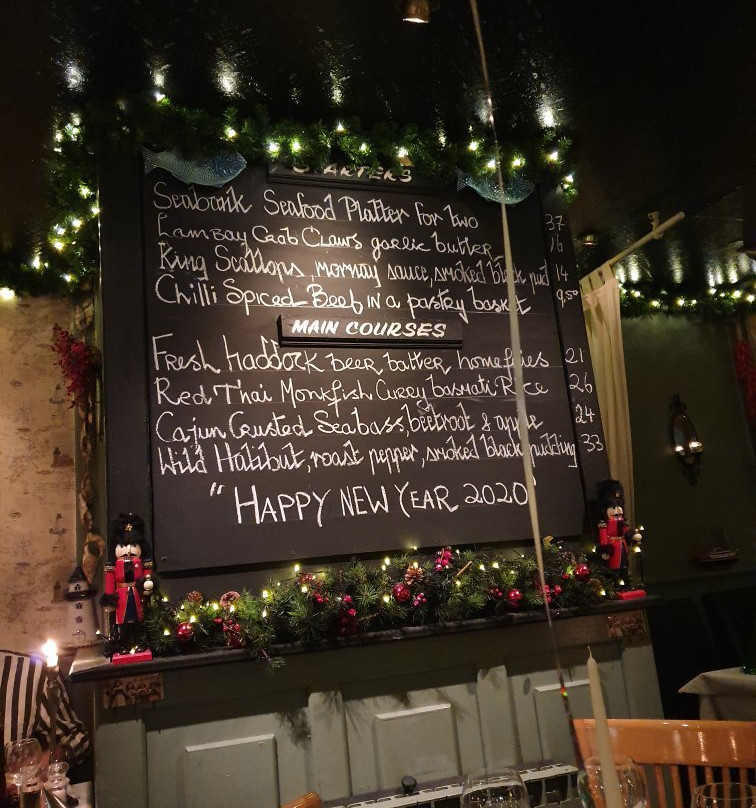 STARTERS
Seabank Seafood Platter for two 37
Lambay Crab Claws garlic butter 16
King Scallops, mornay sauce, smoked black pud 14
Chilli Spiced Beef in a pastry basket 9,50
MAIN COURSES
Fresh Haddock beer batter homefries 21
Red Thai Monkfish Curry basmati Rice 26
Cajun Crusted Seabass, beetroot & apple 24
Wild Halibut, roast pepper, smoked black pudding 33
"HAPPY NEW YEAR 2020"